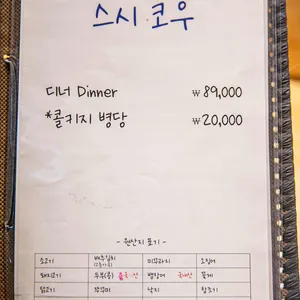 스시 코우
디너 Dinner ₩ 89,000
*콜키지 병당 ₩ 20,000
- 원산지 표기 -
소고기 배추김치 미꾸라지 오징어
돼지고기 두부(콩) 뱀장어 국내산 꽃게
닭고기 쭈꾸미 낙지 참조기